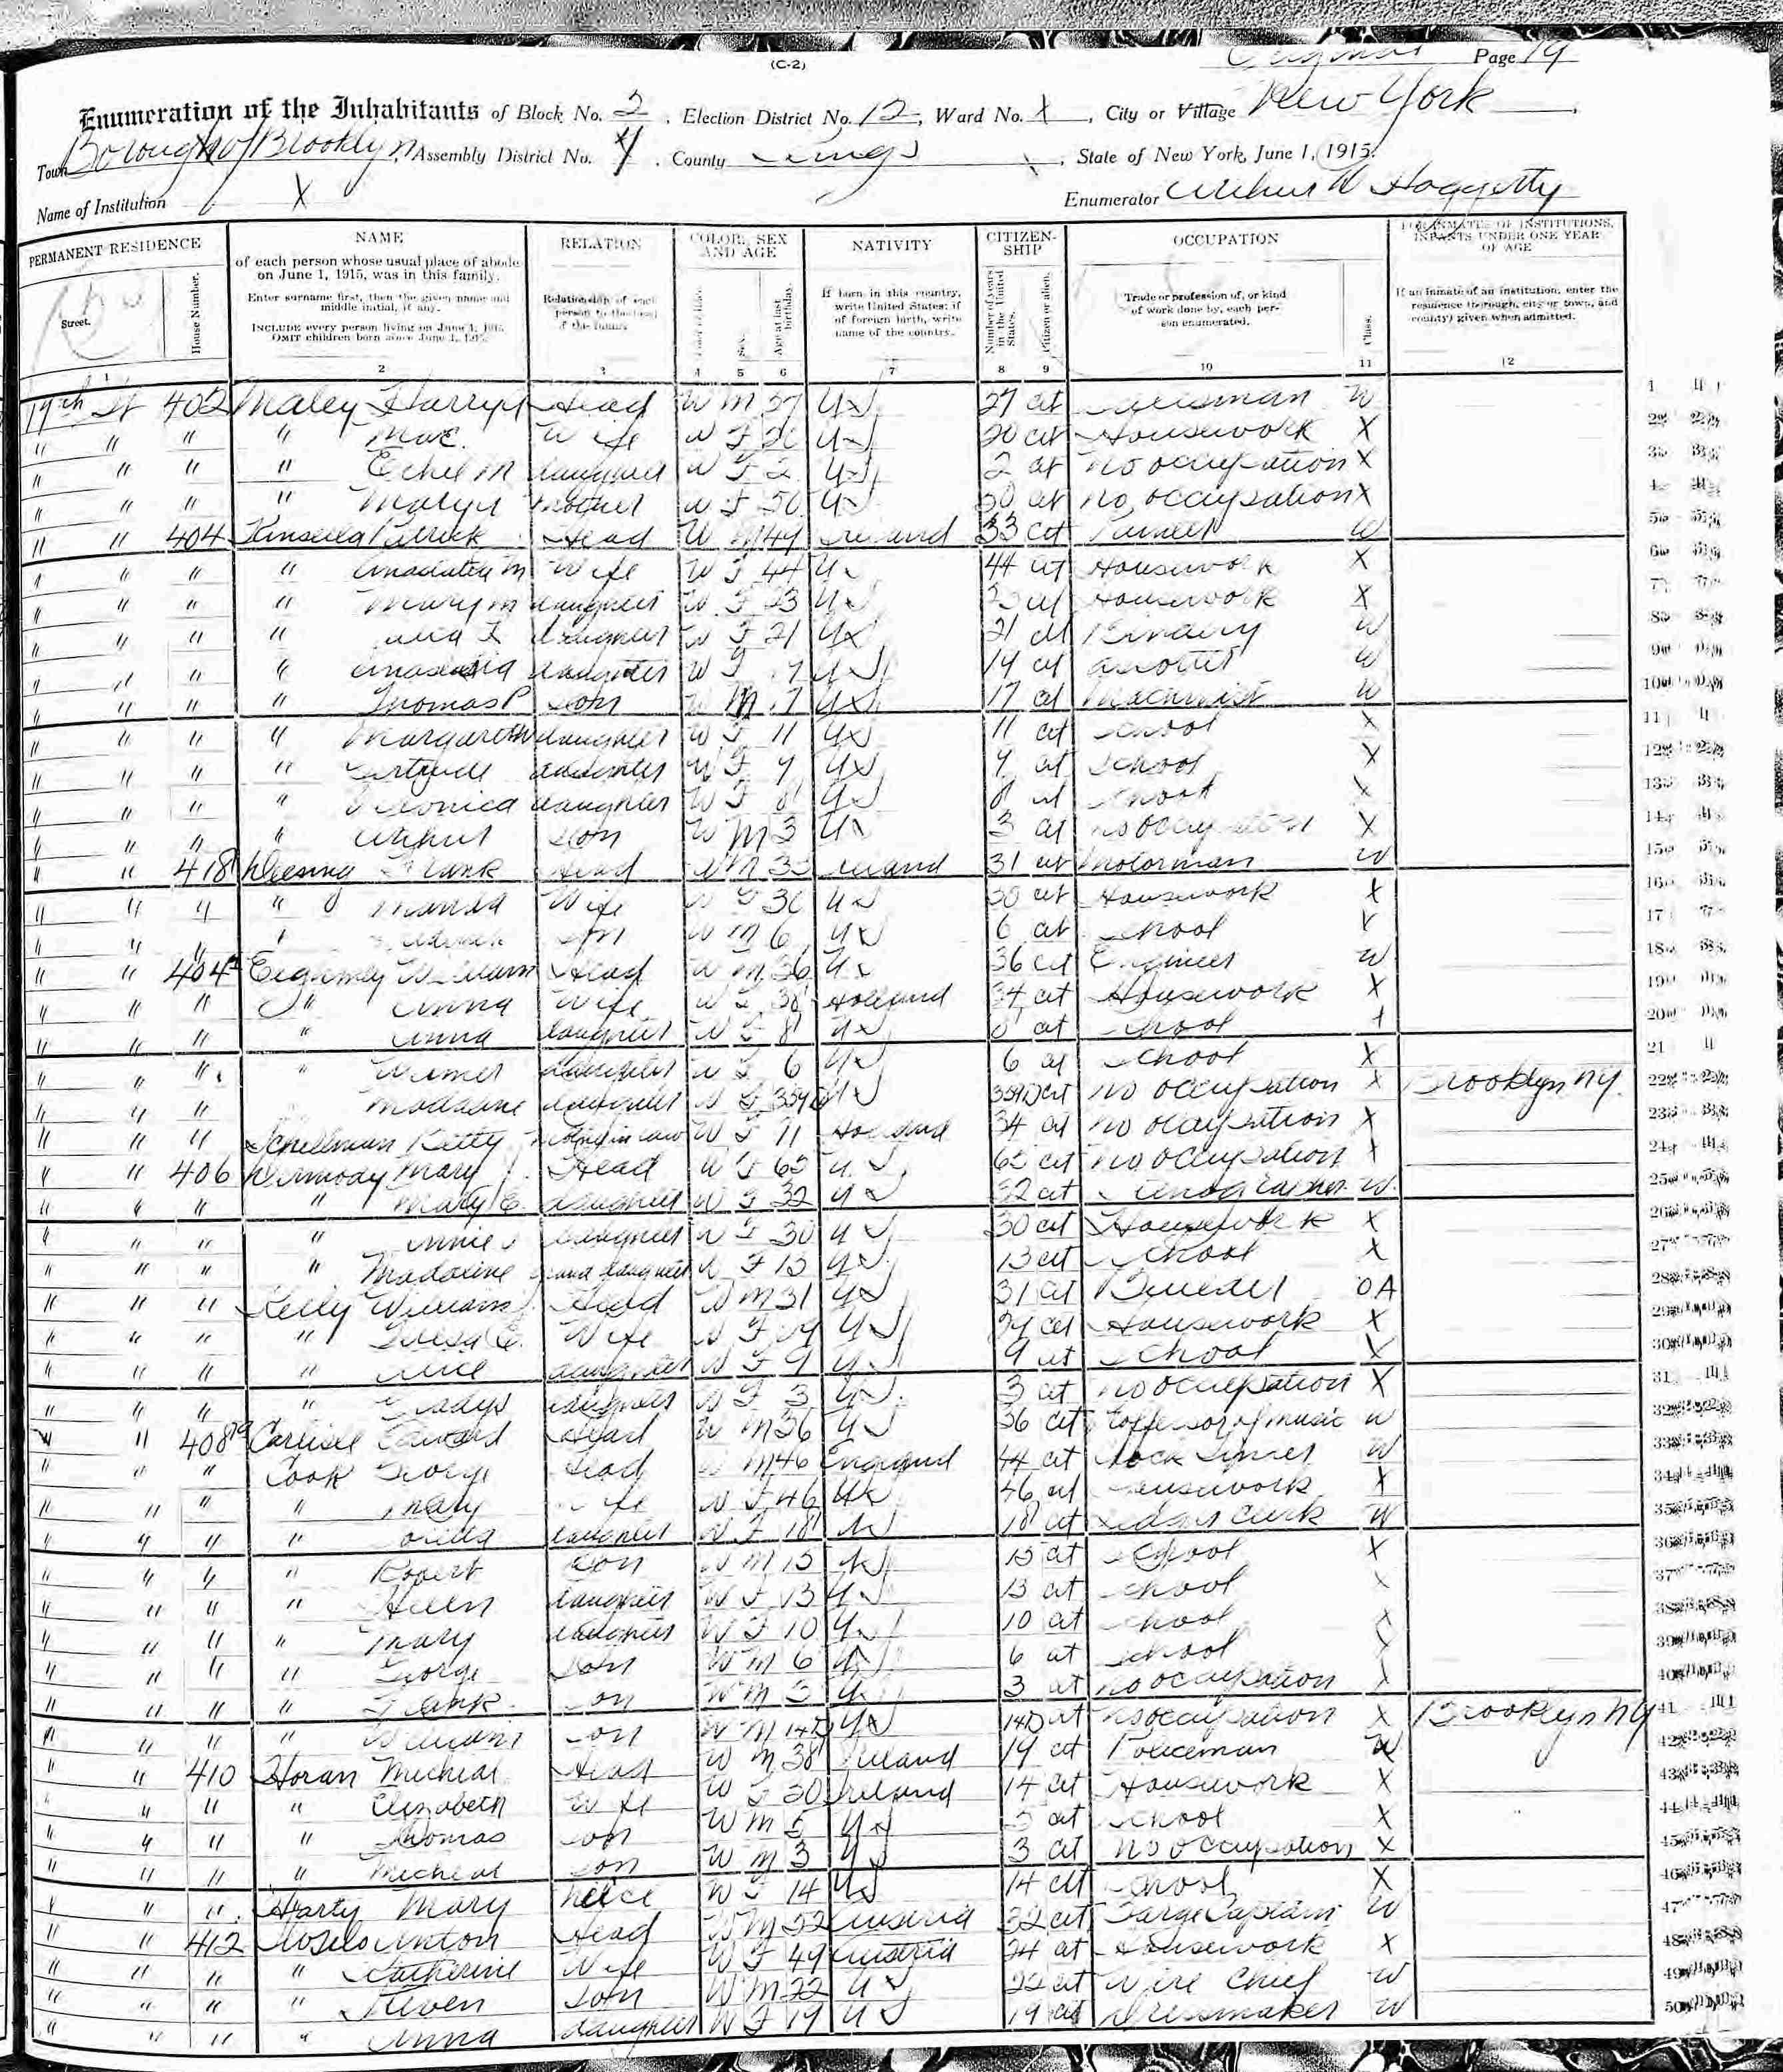 (C-2)
Original Page 19
Enumeration of the Inhabitants of Block No. 2, Election District No. 12, Ward No. X, City or Village New York,
Town Borough of Brooklyn, Assembly District No. County Kings, State of New York, June 1, 1915.
Name of Institution X Enumerator Haggerty
PERMANENT RESIDENCE NAME RELATION COLOR, SEX AND AGE NATIVITY CITIZENSHIP OCCUPATION FOR INMATES OF INSTITUTIONS, INFANTS UNDER ONE YEAR OF AGE
Street. House Number.
of each person whose usual place of abode on June 1, 1915, was in this family.
Enter surname first, then the given name and middle initial, if any.
INCLUDE every person living on June 1, 1915. OMIT children born since June 1, 1915.
Relationship of each person to the head of the family.
Sex. Age at last birthday.
If born in this country, write United States; if of foreign birth, write name of the country.
Number of years in the United States. Citizen or alien.
Trade or profession of, or kind of work done by, each person enumerated. Class.
If an inmate of an institution, enter the residence (borough, city or town, and county) given when admitted.
1 2 3 4 5 6 7 8 9 10 11 12
19th St 402 Maley Harry Head W M 27 US 27 cit Salesman W
" " " " Mae Wife W F 20 US 20 cit Housework X
" " " " Ethel M daughter W F 2 US 2 cit no occupation X
" " " " mother W F 50 US 50 cit no occupation X
" " 404 Kinsella Patrick Head W M 49 Ireland 33 cit W
" " " " Anastatia M Wife W F 44 US 44 cit Housework X
" " " " Mary M daughter W F 23 US 23 cit Housework X
" " " " daughter W F 21 US 21 cit Bindery W
" " " " Anastatia daughter W F US 19 cit W
" " " " Thomas P Son W M 17 US 17 cit Machinist W
" " " " Margaret daughter W F 11 US 11 cit School X
" " " " Gertrude daughter W F 9 US 9 cit School X
" " " " Veronica daughter W F 8 US 8 cit School X
" " " " Arthur Son W M 3 US 3 cit no occupation X
" " 418 Frank Head W M Ireland 31 cit Motorman W
" " " " Wife W F 30 US 30 cit Housework X
" " " " Son W M 6 US 6 cit School X
" " 404 William Head W M 36 US 36 cit Engineer W
" " " " Anna Wife W F 38 Holland 34 cit Housework X
" " " " Anna daughter W F 8 US 8 cit School X
" " " " daughter W F 6 US 6 cit School X
" " " Madaline daughter W F US cit no occupation X Brooklyn NY
" " " Schellman Kitty in law W F Holland 34 cit no occupation X
" " 406 Dermody Mary Head W F 65 US 65 cit no occupation X
" " " " Mary C. daughter W F 32 US 32 cit Stenographer W
" " " " Annie daughter W F 30 US 30 cit Housework X
" " " " Madaline grand daughter W F 13 US 13 cit School X
" " " Kelly William J. Head W M 31 US 31 cit Builder OA
" " " " Teresa C. Wife W F 29 US 29 cit Housework X
" " " " Alice daughter W F 9 US 9 cit School X
" " " " Gladys daughter W F 3 US 3 cit no occupation X
" " 408 Carlisle Edward Head W M 36 US 36 cit Professor of music W
" " " Cook George Head W M 46 England 44 cit W
" " " " Mary Wife W F 46 US 46 cit Housework X
" " " " daughter W F 18 US 18 cit Clerk W
" " " " Robert Son W M 15 US 15 cit School X
" " " " Helen daughter W F 13 US 13 cit School X
" " " " Mary daughter W F 10 US 10 cit School X
" " " " George Son W M 6 US 6 cit School X
" " " " Frank Son W M 3 US 3 cit no occupation X
" " " " William Son W M 14D US 14D cit no occupation X Brooklyn NY
" " 410 Horan Micheal Head W M 38 Ireland 19 cit Policeman W
" " " " Elizabeth Wife W F 30 Ireland 14 cit Housework X
" " " " Thomas Son W M 5 US 5 cit School X
" " " " Micheal Son W M 3 US 3 cit no occupation X
" " " Harty Mary neice W F 14 US 14 cit School X
" " 412 Anton Head W M 52 Austria 32 cit Barge Captain W
" " " " Katherine Wife W F 49 Austria 24 cit Housework X
" " " " Steven Son W M 22 US 22 cit Wire Chief W
" " " " Anna daughter W F 19 US 19 cit Dressmaker W